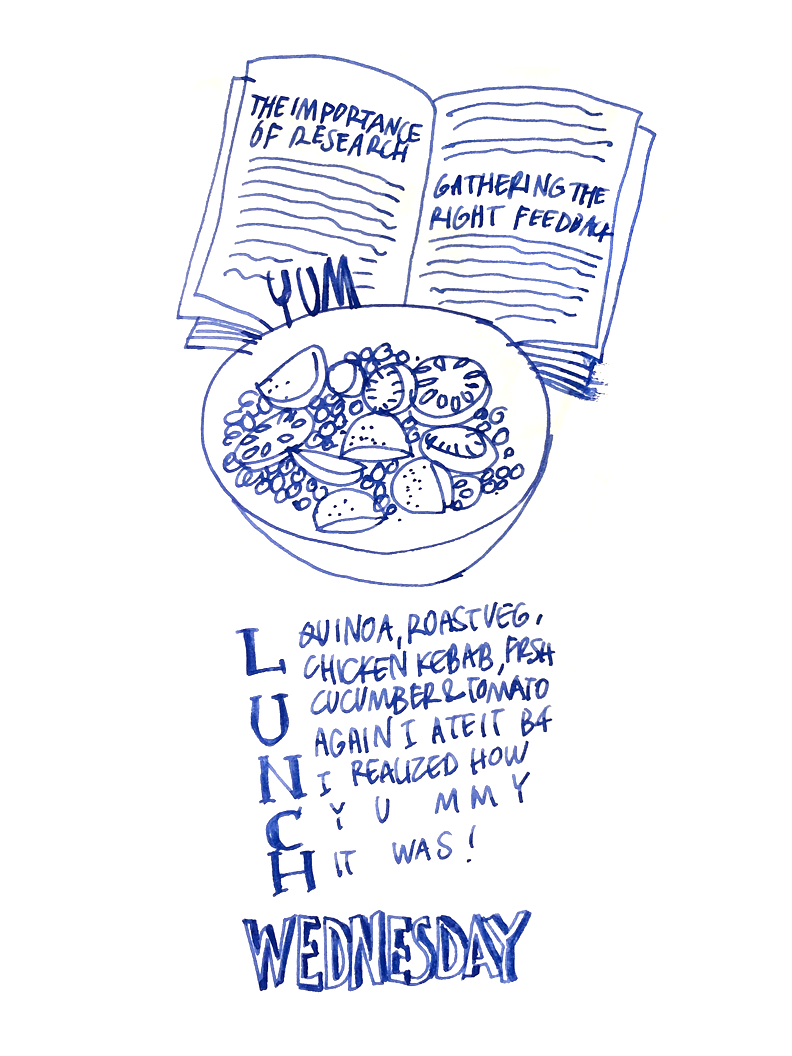 THE IMPORTANCE
OF RESEARCH
GATHERING THE
RIGHT FEEDBACK
YUM
LUNCH
QUINOA, ROAST VEG,
CHICKEN KEBAB, FRSH
CUCUMBER & TOMATO
AGAIN I ATE IT B4
I REALIZED HOW
Y U MMY
IT WAS!
WEDNESDAY